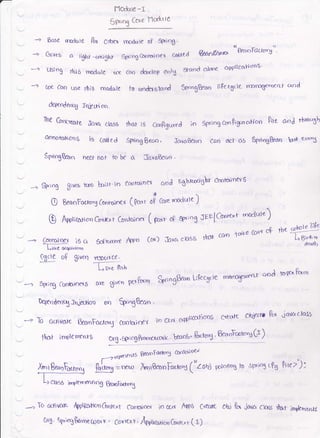 Module-1
Spring Core Module
→ Base module for other modules of Spring.
→ Gives a light-weight Spring Container called BeanFactory "BeanFactory"
→ Using this module we can develop only stand alone applications.
→ We can use this module to understand SpringBean lifecycle management and
dependency Injection.
The Concrete Java class that is Configured in Spring Configuration file and through
annotations is called Spring Bean. JavaBean can act as SpringBean but every
SpringBean need not to be a JavaBean.
→ Spring gives two built-in containers and lightweight containers
① BeanFactory Container (Part of Core module)
② Application Context Container (part of Spring JEE/Context module)
→ Container is a Software App (or) Java class that can take care of the whole life
cycle of given resource.
→ Spring Containers are given perform SpringBean Lifecycle management and to perform
Dependency Injection on SpringBean.
→ To activate BeanFactory container in our applications create object for java class
that implements org.springframework.beans.factory.BeanFactory(I)
→ represents BeanFactory container
XmlBeanFactory factory = new XmlBeanFactory( <obj pointing to spring cfg file> );
→ class implementing BeanFactory
→ To activate ApplicationContext Container in our Apps create obj for java class that implements
Org.springframework.context.ApplicationContext (I)